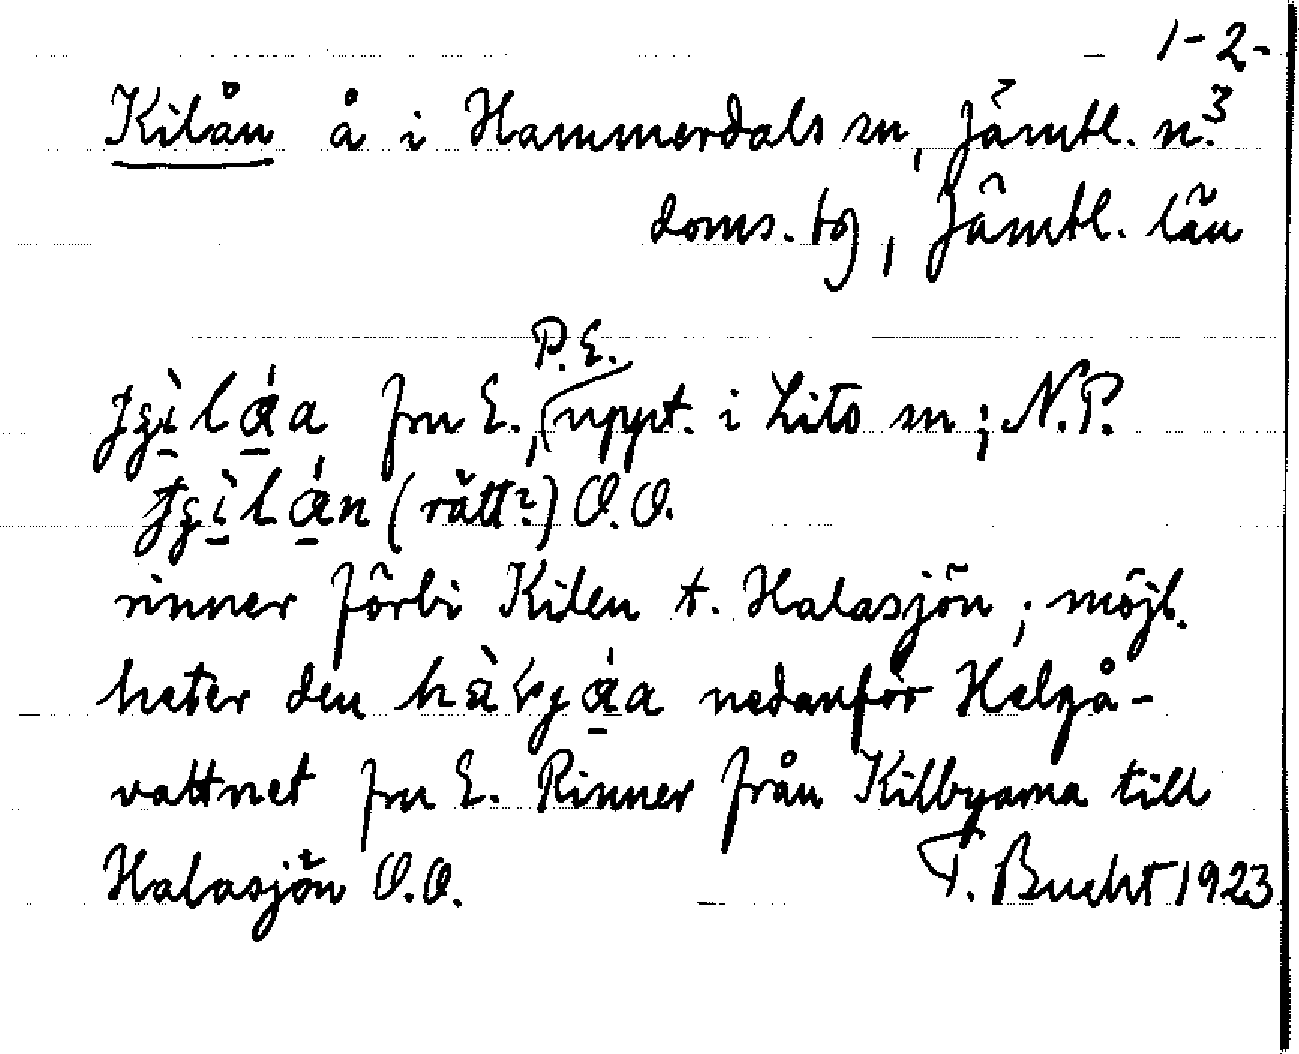 1-2-
Kilån å i Hammerdals sn, Jämtl. n.³
doms. tg, Jämtl. län
P.E.
fru E., uppt. i Lits sn; N.P.
(rätt?) O.O.
rinner förbi Kilen t. Halasjön; möjl.
heter den nedanför Helgå-
vattnet fru E. Rinner från Kilbyarna till
Halasjön O.O. T. Bucht 1923